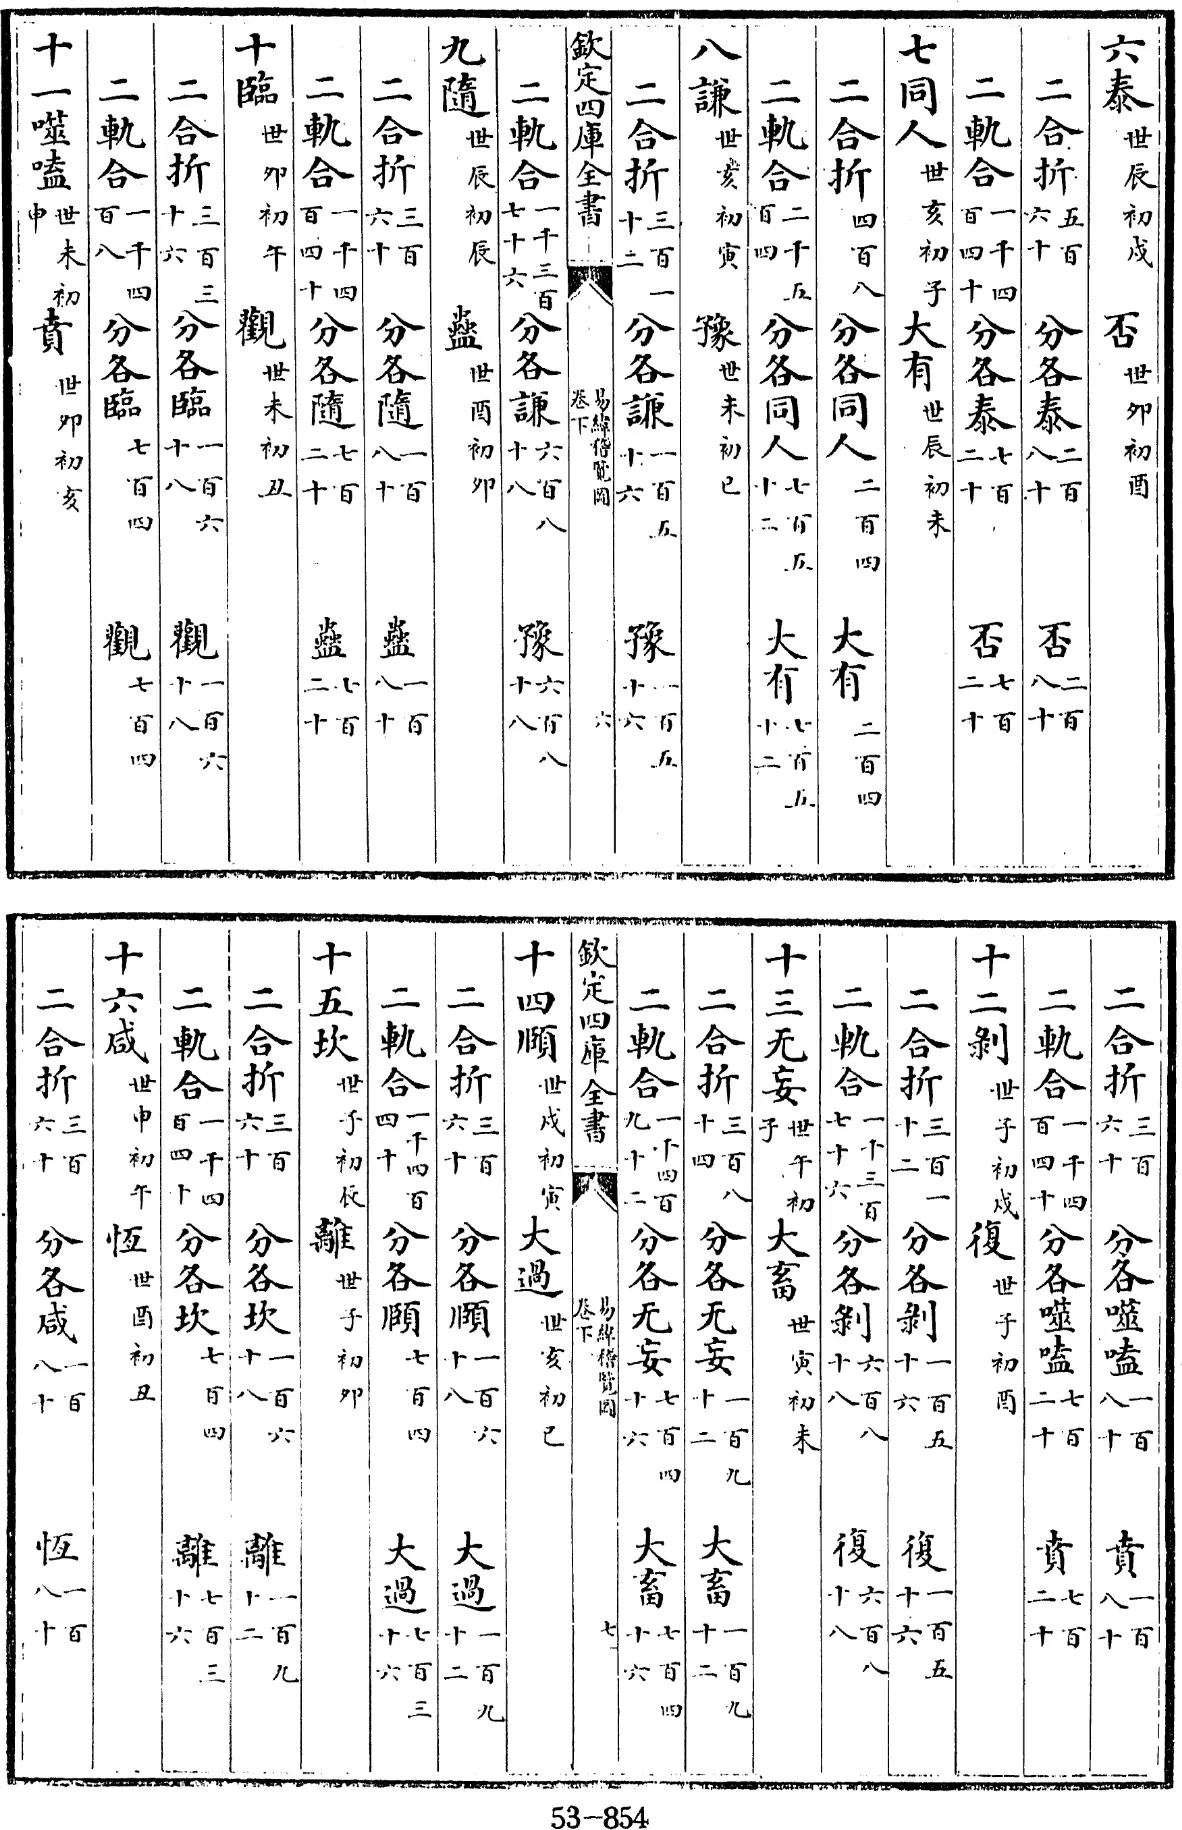 六泰世辰初戍 否世卯初酉
二合折五百六十 分各泰二百八十 否二百八十
二軌合一千四百四十 分各泰七百二十 否七百二十
七同人世亥初子 大有世辰初未
二合折四百八 分各同人二百四 大有二百四
二軌合二千五百四 分各同人七百五十二 大有七百五十二
八謙世亥初寅 豫世未初巳
二合折三百一十二 分各謙一百五十六 豫一百五十六
欽定四庫全書 易緯稽覽圖卷下 六
二軌合一千三百七十六 分各謙六百八十八 豫六百八十八
九隨世辰初辰 蠱世酉初卯
二合折三百六十 分各隨一百八十 蠱一百八十
二軌合一千四百四十 分各隨七百二十 蠱七百二十
十臨世卯初午 觀世未初丑
二合折三百三十六 分各臨一百六十八 觀一百六十八
二軌合一千四百八 分各臨七百四 觀七百四
十一噬嗑世未初申 賁世卯初亥
二合折三百六十 分各噬嗑一百八十 賁一百八十
二軌合一千四百四十 分各噬嗑七百二十 賁七百二十
十二剝世子初戍 復世子初酉
二合折三百一十二 分各剝一百五十六 復一百五十六
二軌合一千三百七十六 分各剝六百八十八 復六百八十八
十三无妄世午初子 大畜世寅初未
二合折三百八十四 分各无妄一百九十二 大畜一百九十二
二軌合一千四百九十二 分各无妄七百四十六 大畜七百四十六
欽定四庫全書 易緯稽覽圖卷下 七
十四頤世戍初寅 大過世亥初巳
二合折三百六十 分各頤一百六十八 大過一百九十二
二軌合一千四百四十 分各頤七百四 大過七百三十六
十五坎世子初辰 離世子初卯
二合折三百六十 分各坎一百六十八 離一百九十二
二軌合一千四百四十 分各坎七百四 離七百三十六
十六咸世申初午 恆世酉初丑
二合折三百六十 分各咸一百八十 恆一百八十
53-854